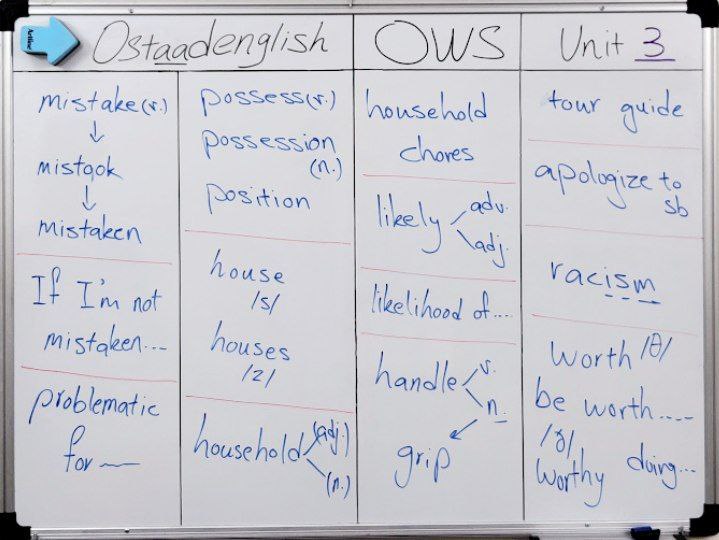 Artline
Ostaadenglish
OWS
Unit 3
mistake (v.)
↓
mistook
↓
mistaken
If I'm not
mistaken...
problematic
for
possess (v.)
possession
(n.)
position
house
/s/
houses
/z/
household (adj.)
(n.)
household
chores
likely adv.
adj.
likelihood of....
handle v.
n.
grip
tour guide
apologize to
sb
racism
worth /θ/
be worth....
doing...
/ð/
worthy